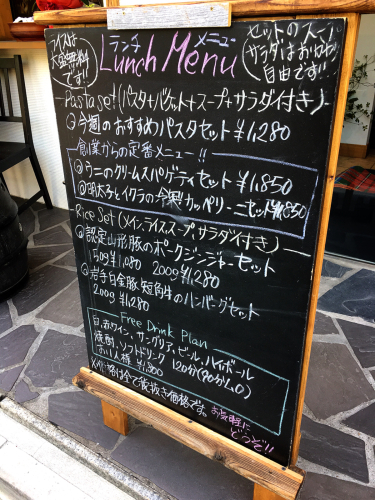 ライスは
大盛無料
です!!
ランチ メニュー
Lunch Menu
セットのスープ
サラダはおかわり
自由です!!
Pasta set (パスタ+バゲット+スープ+サラダ付き)
今週のおすすめパスタセット ¥1,280
創業からの定番メニュー!!
ウニのクリームスパゲティセット ¥1,850
明太子とイクラの冷製カッペリーニセット ¥1,850
Rice Set (メイン+ライス+スープ+サラダ付き)
認定山形豚のポークジンジャーセット
150g ¥1,080 200g ¥1,280
岩手白金豚 短角牛のハンバーグセット
200g ¥1,280
Free Drink Plan
白、赤ワイン、サングリア、ビール、ハイボール
焼酎、ソフトドリンク 120分(90分LO)
お1人様 ¥1,800
※価格は全て税抜き価格です。
お気軽に
どうぞ!!